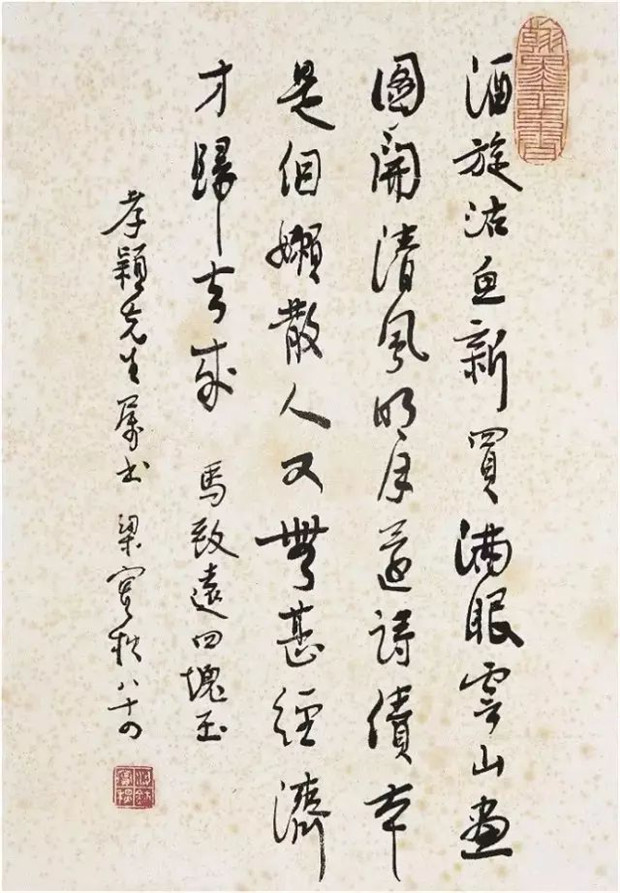 酒旋沽魚新買滿眼雲山畫
圖開清風明月還詩債本
是個嬾散人又無甚經濟
才歸去來 馬致遠四塊玉
孝穎先生屬書 梁實秋八十四